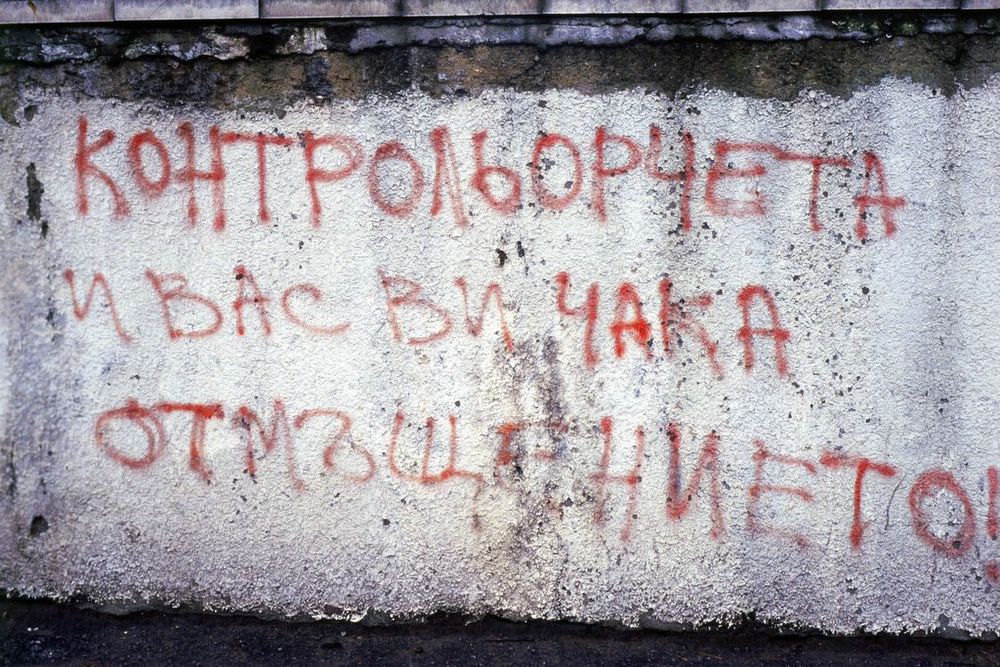 КОНТРОЛЬОРЧЕТА
И ВАС ВИ ЧАКА
ОТМЪЩЕНИЕТО!